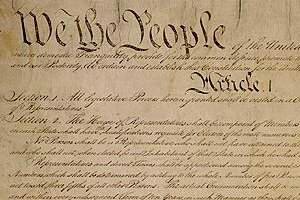 We the People of the United
insure domestic Tranquility, provide for the common defence, promote
and our Posterity, do ordain and establish this Constitution for the
Article. I.
Section. 1. All legislative Powers herein granted shall be vested in a
Representatives.
Section. 2. The House of Representatives shall be composed of Members
in each State shall have the Qualifications requisite for Electors of the most numerous
No Person shall be a Representative who shall not have attained to
and who shall not, when elected, be an Inhabitant of that State in which he shall
Representatives and direct Taxes shall be apportioned among the
Numbers, which shall be determined by adding to the whole Number of free Persons
not taxed, three fifths of all other Persons. The actual Enumeration shall be
and within every subsequent Term of ten Years, in such Manner as they shall